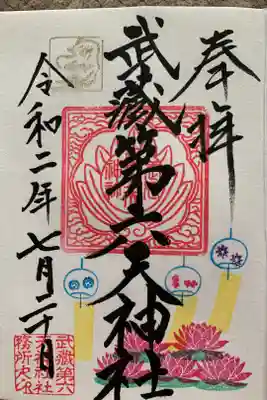 奉拝
武蔵第六天神社
令和二年七月二十日
武蔵第六
天神社社
務所之印